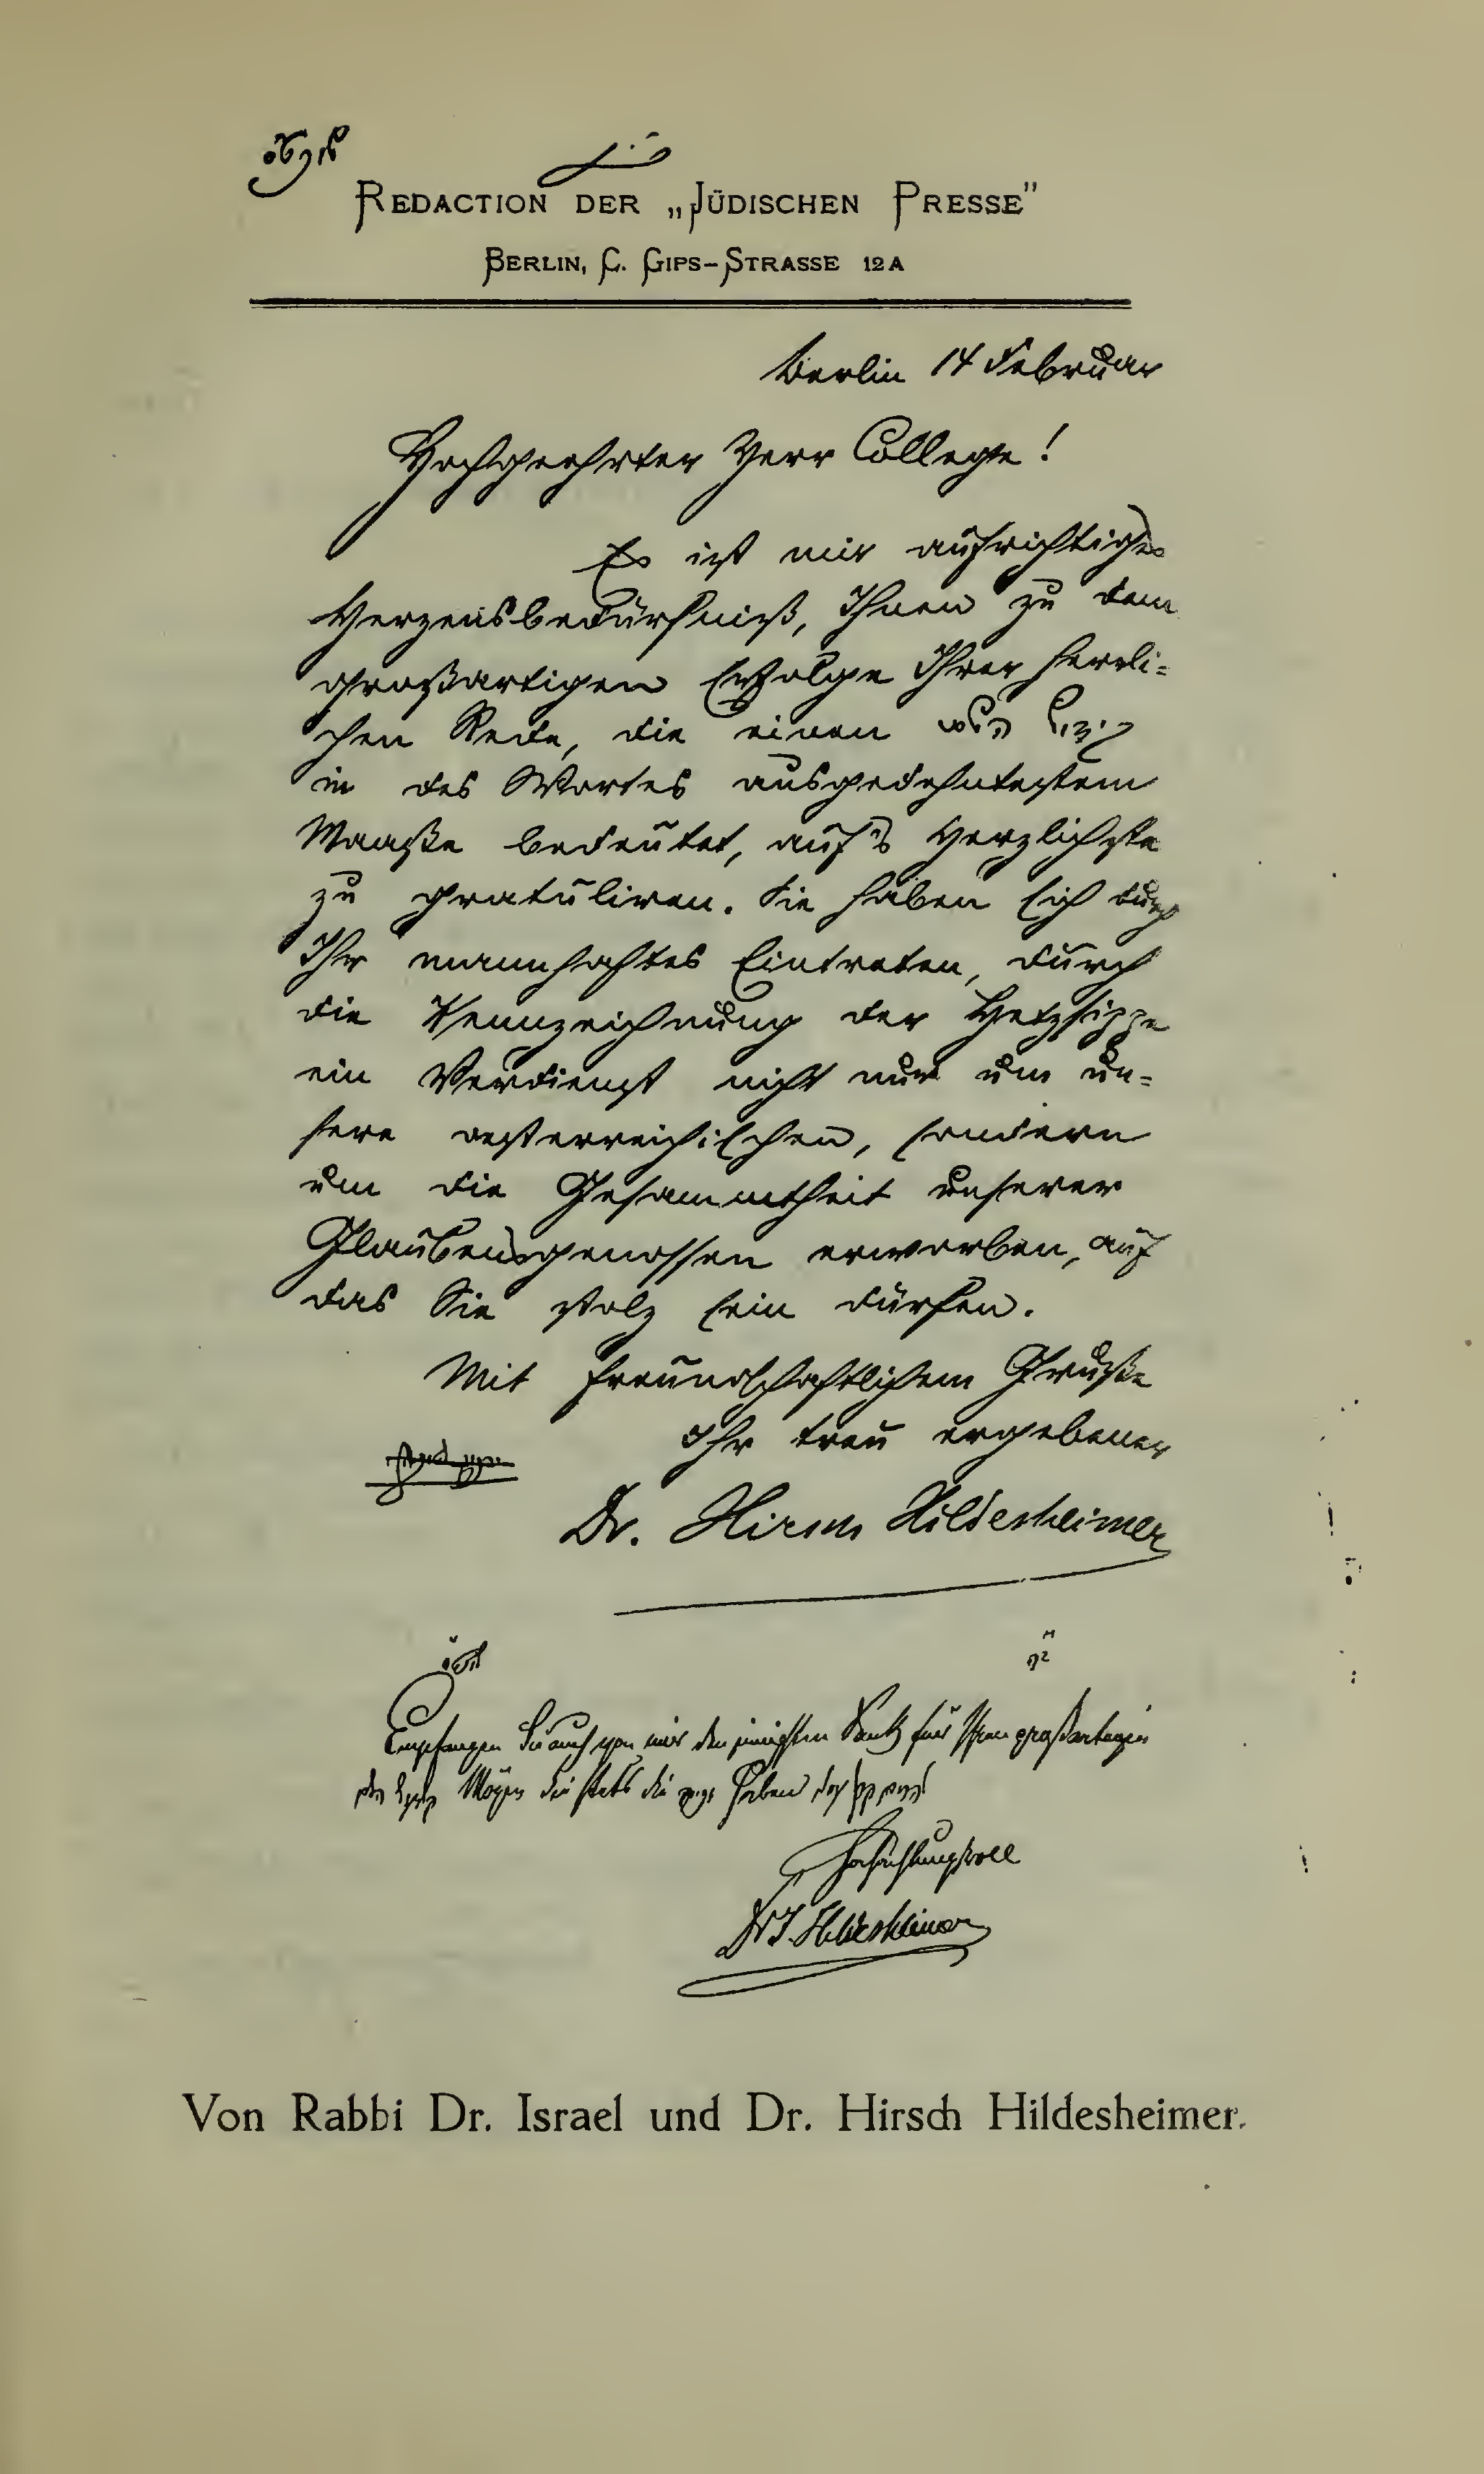 REDACTION DER „JÜDISCHEN PRESSE"
BERLIN, C. GIPS-STRASSE 12A
Berlin 14 Februar
Hochgeehrter Herr College!
Es ist mir aufrichtiges
Herzensbedürfniß, Ihnen zu dem
großartigen Erfolge Ihrer herrli-
chen Rede, die einen
in des Wortes ausgedehntestem
Maaße bedeutet, auf's Herzlichste
zu gratuliren. Sie haben sich durch
Ihr mannhaftes Eintreten, durch
die Kennzeichnung der Hetzsippe
ein Verdienst nicht nur um un-
sere oesterreichischen, sondern
um die Gesammtheit unserer
Glaubensgenossen erworben, auf
das Sie stolz sein dürfen.
Mit freundschaftlichem Gruße
Ihr treu ergebener
Dr. Hirsch Hildesheimer
Empfangen Sie auch von mir den innigsten Dank für Ihren großartigen
Mögen Sie stets die haben
Hochachtungsvoll
Dr J. Hildesheimer
Von Rabbi Dr. Israel und Dr. Hirsch Hildesheimer.